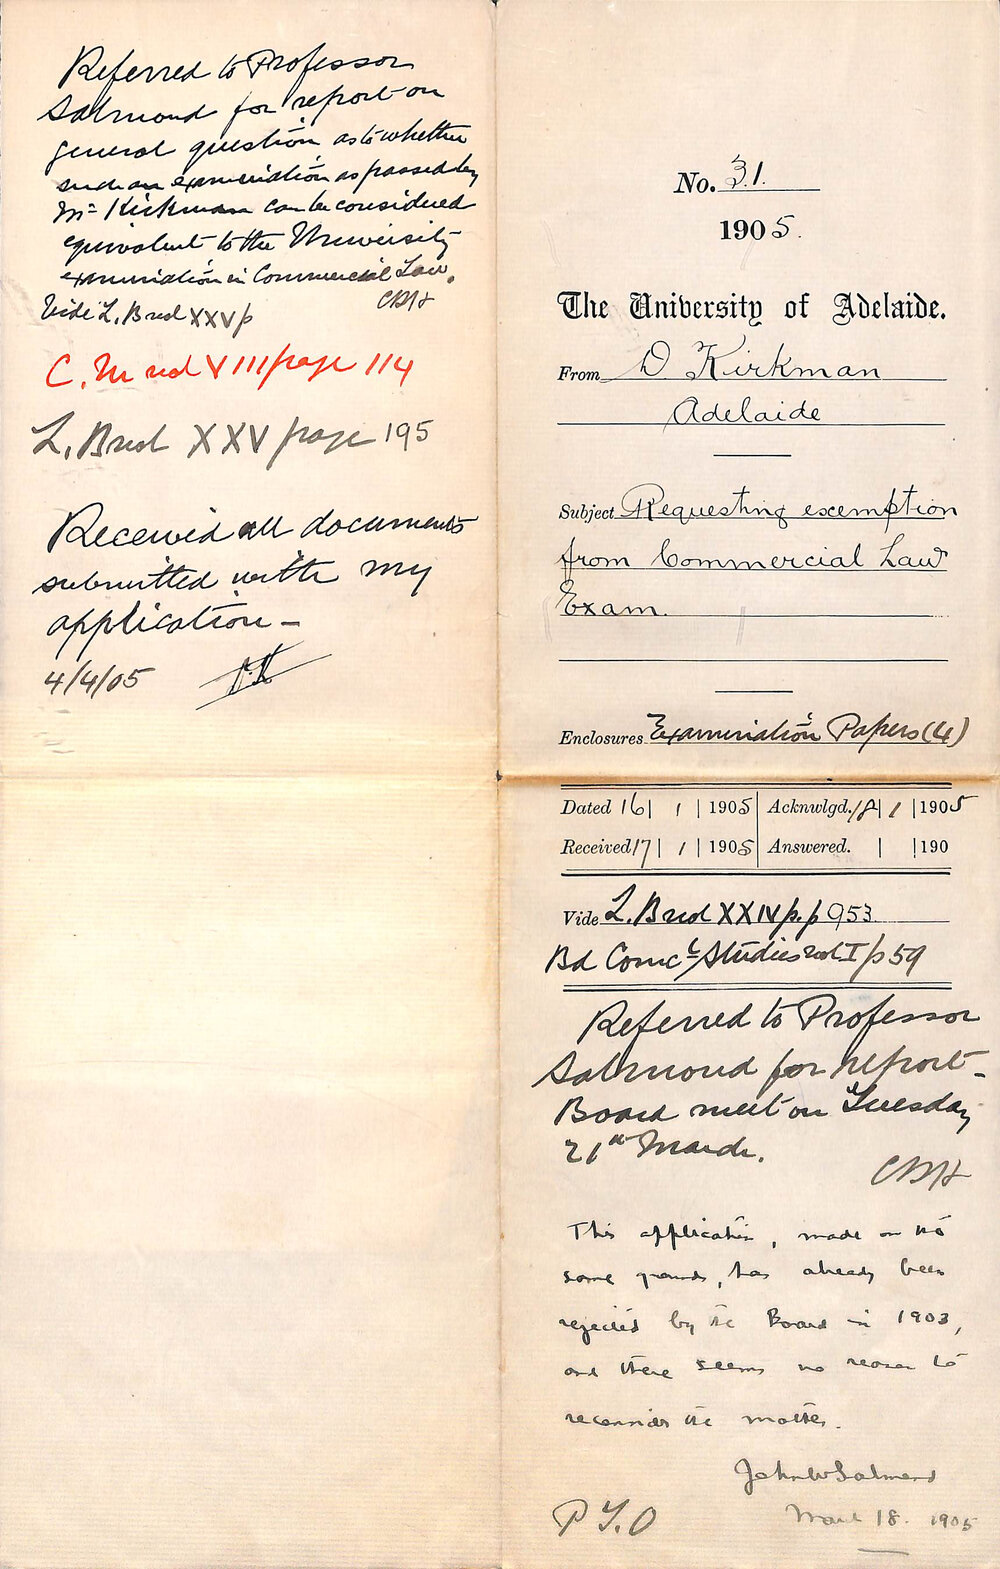 Referred to Professor
Salmond for report on
general question as to whether
such an examination as passed by
Mr Kirkman can be considered
equivalent to the University
examination in Commercial Law.
CBH
Vide L. B vol XXV p
C. M vol VIII page 114
L. B vol XXV page 195
Received all documents
submitted with my
application –
4/4/05
No. 31.
1905.
The University of Adelaide.
From D Kirkman
Adelaide
Subject Requesting exemption
from Commercial Law
Exam.
Enclosures Examination Papers (4)
Dated 16 | 1 | 1905 Acknwlgd. 18 | 1 | 1905
Received 17 | 1 | 1905 Answered. | | 190
Vide L. B vol XXIV p.p 953
Bd Comcl Studies vol I p 59
Referred to Professor
Salmond for report –
Board meet on Tuesday
21st March.
CBH
This application, made on the
same grounds, has already been
rejected by the Board in 1903,
and there seems no reason to
reconsider the matter.
John W Salmond
March 18. 1905
P T.O